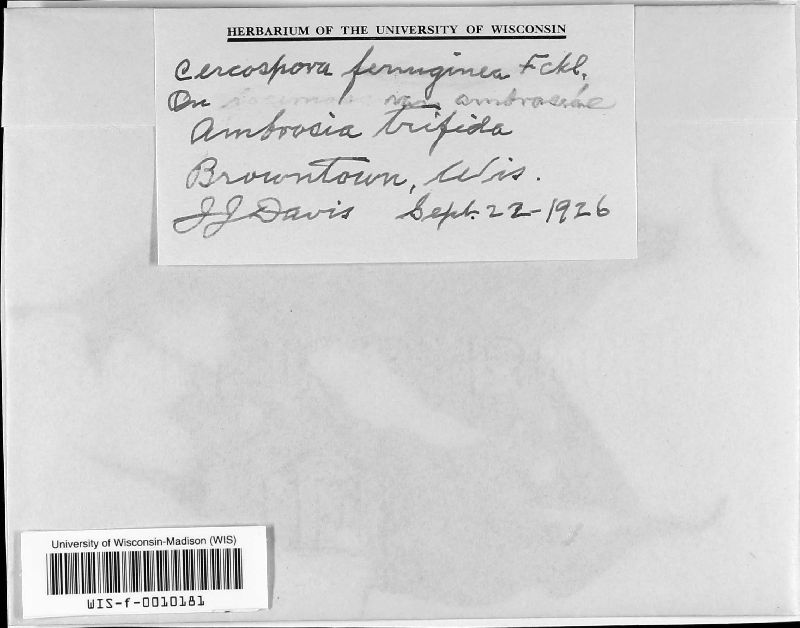 HERBARIUM OF THE UNIVERSITY OF WISCONSIN
Cercospora ferruginea Fckl.
On var. ambrosiae
Ambrosia trifida
Browntown, Wis.
JJ Davis Sept. 22-1926
University of Wisconsin-Madison (WIS)
WIS-f-0010181